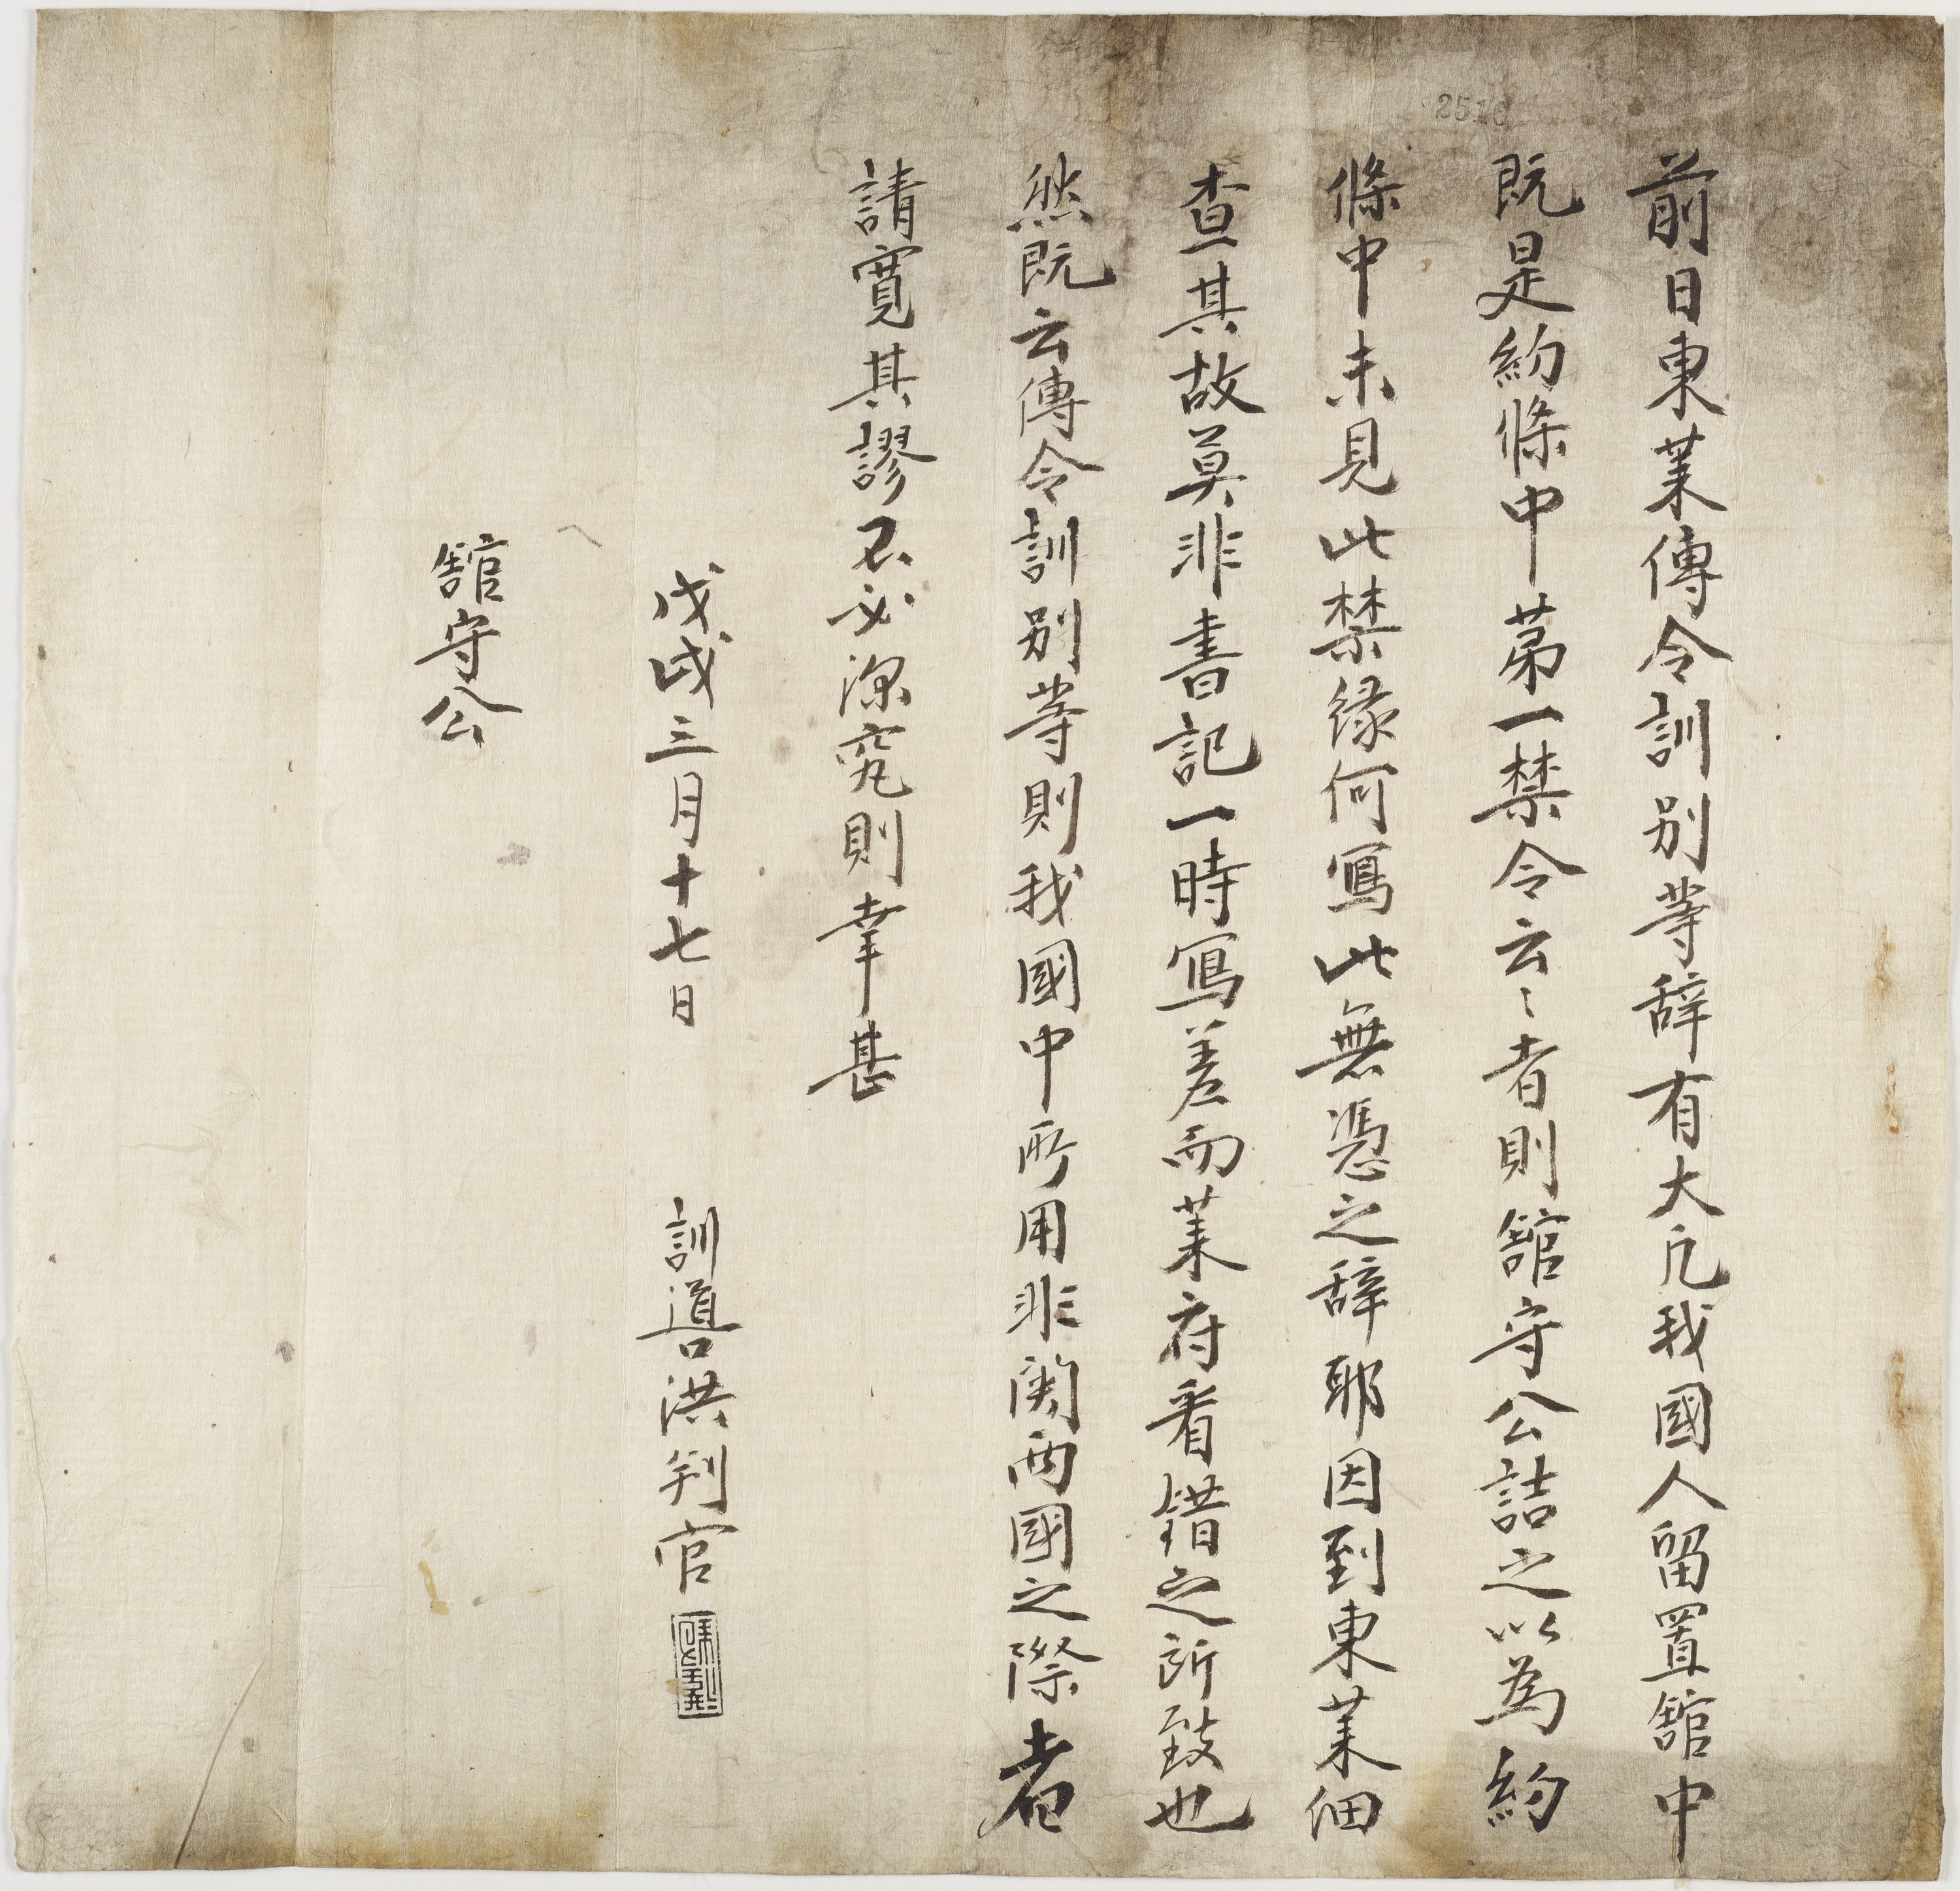 2516
前日東萊傳令訓別等辞有大凡我國人留置舘中
既是約條中苐一禁令云〻者則舘守公詰之以為約
條中未見此禁緣何寫此無憑之辞耶因到東萊細
查其故莫非書記一時寫差而萊府看錯之所致也
然既云傳令訓別等則我國中所用非関兩國之際者
請寬其謬不必深究則幸甚
戊戌三月十七日 訓導洪判官
舘守公